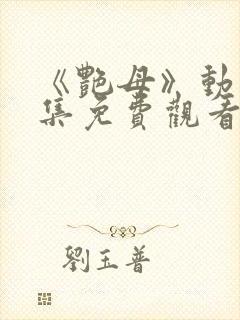 《艷母》動
集免費觀看
劉玉普